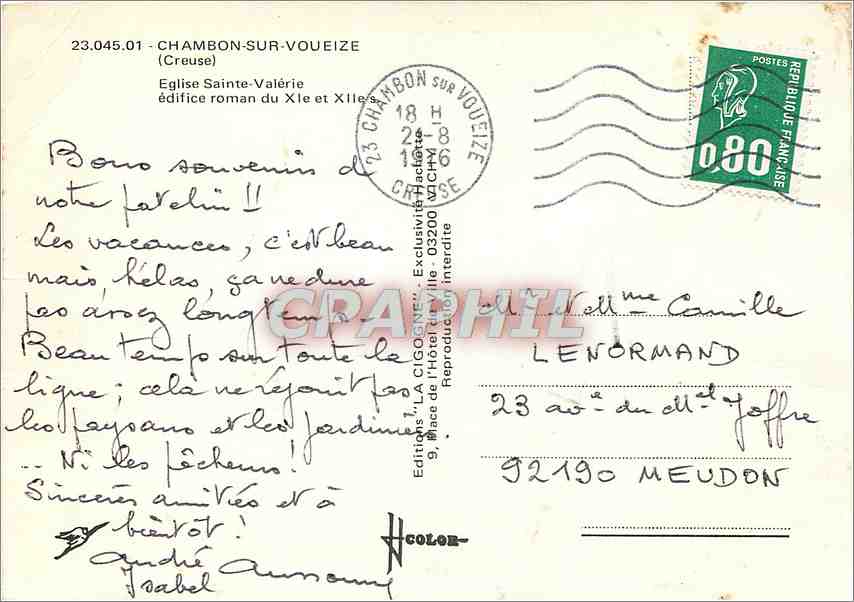 23.045.01 - CHAMBON-SUR-VOUEIZE
(Creuse)
Eglise Sainte-Valérie
édifice roman du XIe et XIIe s.
23 CHAMBON SUR VOUEIZE
18 H
21-8
1976
CREUSE
POSTES
REPUBLIQUE FRANÇAISE
0,80
Bons souvenirs de
notre patelin !!
Les vacances, c'est beau
mais, hélas, ça ne dure
pas assez longtemps -
Beau temps sur toute la
ligne ; cela ne réjouit pas
les paysans et les jardiniers
... Ni les pêcheurs !
Sincères amitiés et à
bientôt !
André
Isabel
Editions "LA CIGOGNE" - Exclusivité Hachette
9, Place de l'Hôtel de Ville - 03200 VICHY
Reproduction interdite
CPAPHIL
Mr et Mme Camille
LENORMAND
23 ave du Mal Joffre
92190 MEUDON
COLOR